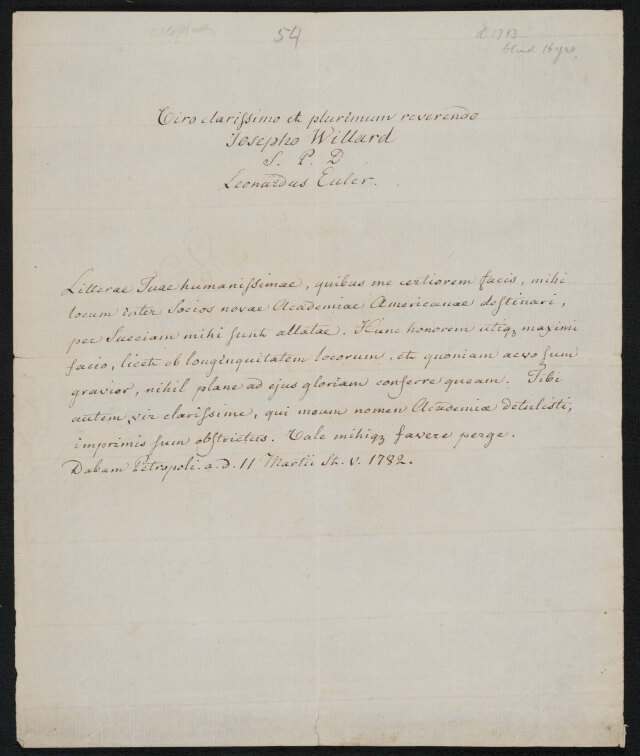 54
d 1783
blind 16 yrs.
Viro clarissimo et plurimum reverendo
Josepho Willard
S. P. D
Leonardus Euler.
Litterae Tuae humanissimae, quibus me certiorem facis, mihi
locum inter Socios novae Academiae Americanae destinari,
per Sueciam mihi sunt allatae. Hunc honorem utiqꝫ maximi
facio, licet ob longinquitatem locorum, et quoniam aevo sum
gravior, nihil plane ad ejus gloriam conferre queam. Tibi
autem, vir clarissime, qui meum nomen Academiæ detulisti,
imprimis sum obstrictus. Vale mihiqꝫ favere perge.
Dabam Petropoli. a. d. 11 Martii St. v. 1782.